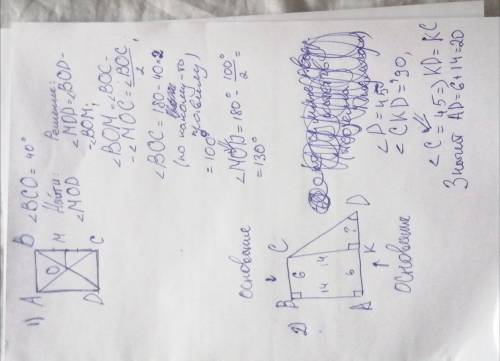 1) ∠BCO = 40°
A
B
O
M
D
C
Найти:
∠MOD
Решение:
∠MOD = ∠BOD -
- ∠BOM;
∠BOM = ∠BOC -
- ∠MOC = ∠BOC/2
∠BOC = 180 - 40·2
= 100°
∠MOD = 180° - 100°/2 =
= 130°
2)
основание
B
6
C
14
14
A
6
K
?
D
основание
∠D = 45°
∠CKD = 90,
∠C = 45 => KD = KC
Значит AD = 6 + 14 = 20